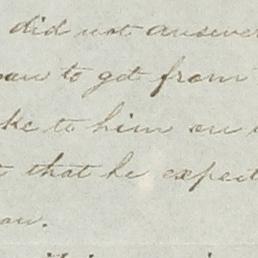 did not answer
to get from
ke to him on
that he expect